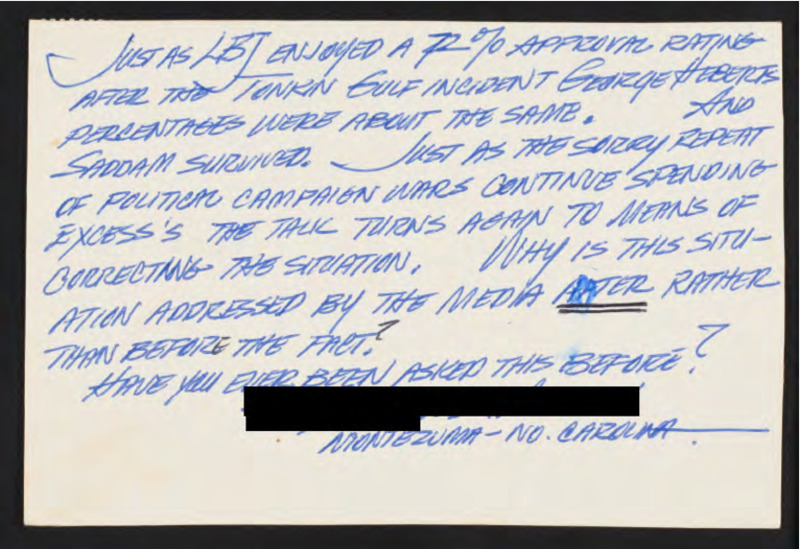 JUST AS LBJ ENJOYED A 72% APPROVAL RATING
AFTER THE TONKIN GULF INCIDENT GEORGE HEBERTS
PERCENTAGES WERE ABOUT THE SAME. AND
SADDAM SURVIVED. JUST AS THE SORRY REPEAT
OF POLITICAL CAMPAIGN WARS CONTINUE SPENDING
EXCESS'S THE TALK TURNS AGAIN TO MEANS OF
CORRECTING THE SITUATION. WHY IS THIS SITU-
ATION ADDRESSED BY THE MEDIA AFTER RATHER
THAN BEFORE THE FACT?
HAVE YOU EVER BEEN ASKED THIS BEFORE?
MONTEZUMA - NO. CAROLINA